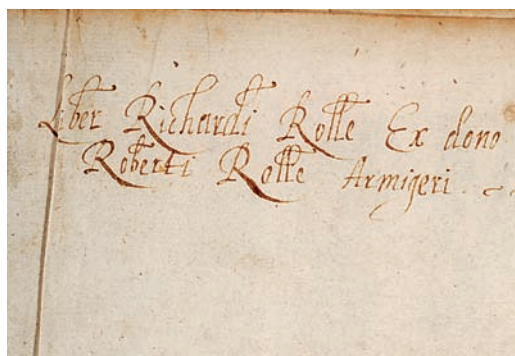 Liber Richardi Rolle Ex dono
Roberti Rolle Armigeri.